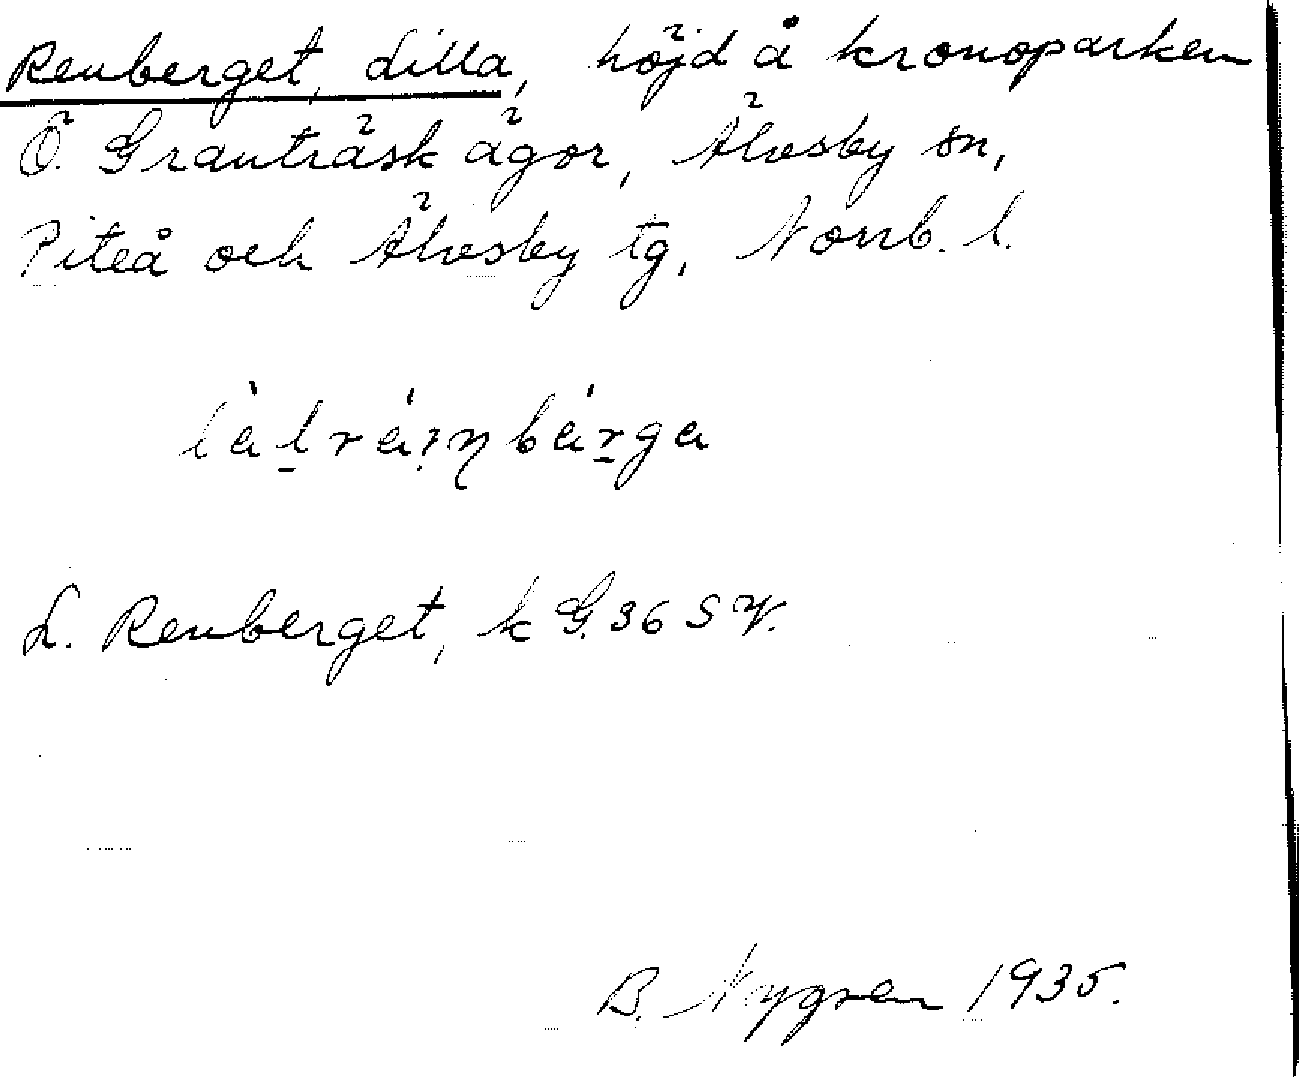 Renberget, Lilla, höjd å kronoparken
Ö. Granträsk ägor, Älvsby sn,
Piteå och Älvsby tg, Norrb. l.
L. Renberget, k G. 36 SV.
B. Nygren 1935.